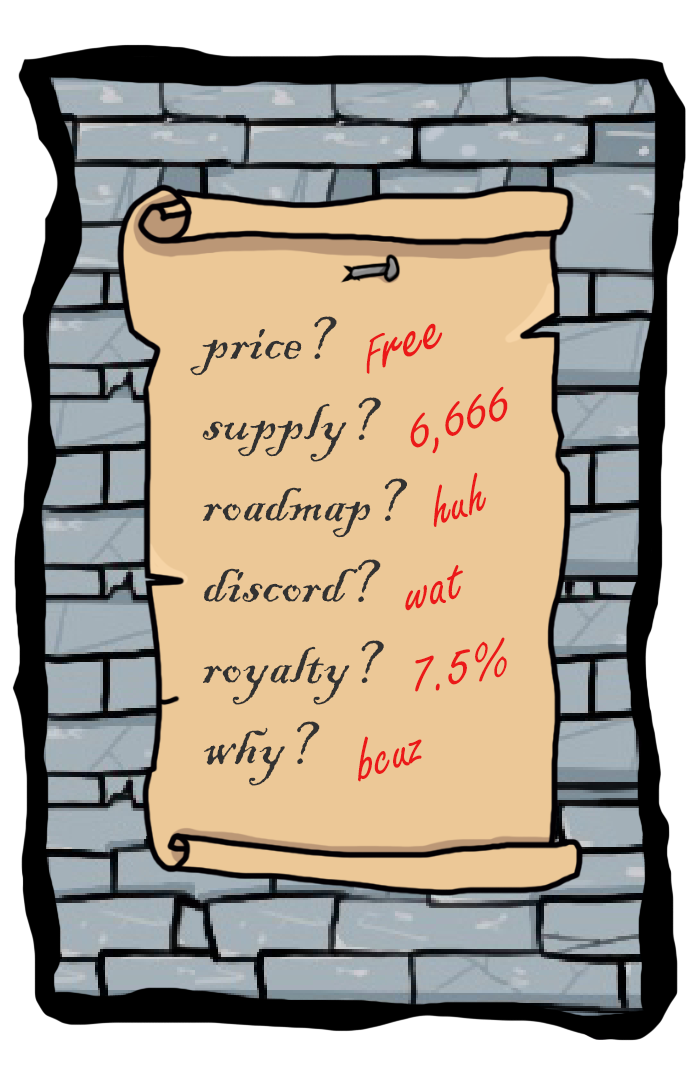 price? Free
supply? 6,666
roadmap? huh
discord? wat
royalty? 7.5%
why? bcuz